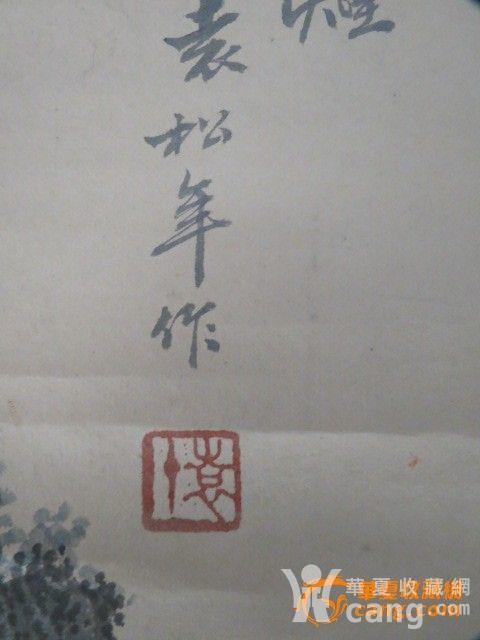 袁松年作
袁
華夏收藏網
cang.com